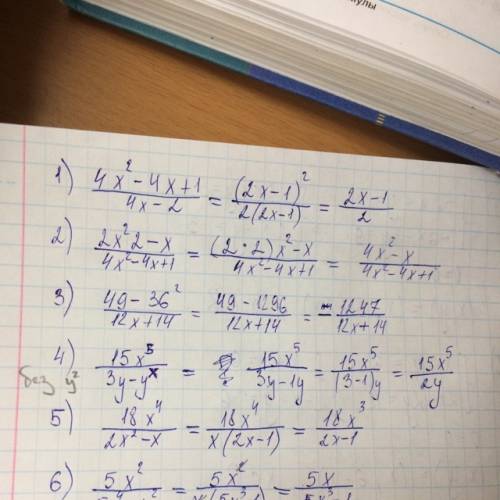 1) (4x²-4x+1)/(4x-2) = (2x-1)²/(2(2x-1)) = (2x-1)/2
2) (2x²2-x)/(4x²-4x+1) = ((2·2)x²-x)/(4x²-4x+1) = (4x²-x)/(4x²-4x+1)
3) (49-36²)/(12x+14) = (49-1296)/(12x+14) = -1247/(12x+14)
4) 15x⁵/(3y-yˣ) = 15x⁵/(3y-1y) = 15x⁵/((3-1)y) = 15x⁵/(2y)
без y²
5) 18x⁴/(2x²-x) = 18x⁴/(x(2x-1)) = 18x³/(2x-1)
6) 5x² = 5x² = 5x